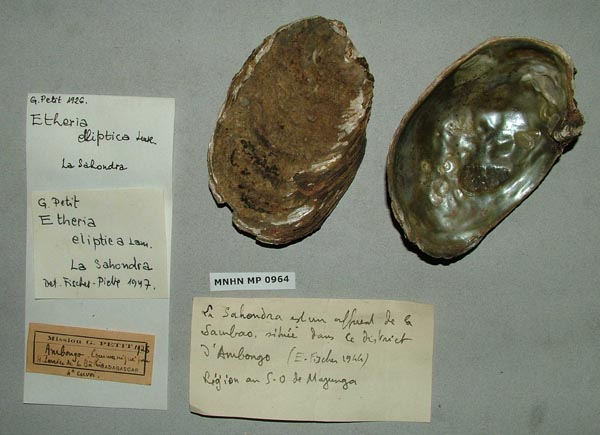 G. Petit 1926.
Etheria
elliptica Lamk
La Sahondra
G. Petit
Etheria
eliptica Lam.
La Sahondra
Det. Fischer-Piette 1947.
Mission G. PETIT 1926
Ambongo
MADAGASCAR
MNHN MP 0964
La Sahondra est un affluent de la
Sambao, située dans le district
d'Ambongo (E-Fischer 1944)
Région au S-O de Majunga